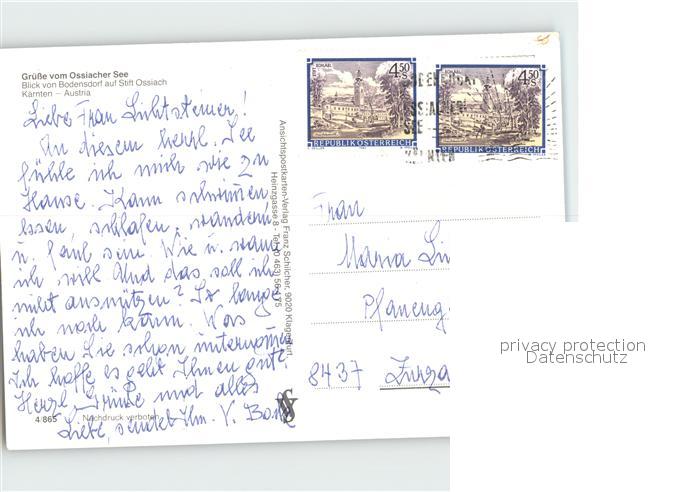 Grüße vom Ossiacher See
Blick von Bodensdorf auf Stift Ossiach
Kärnten – Austria
Liebe Frau Lichtsteiner!
An diesem herrl. See
fühle ich mich wie zu
Hause. Kann schwimmen
essen, schlafen, wandern
u. faul sein. Wie u. wann
ich will. Und das soll ich
nicht ausnützen? So lang
ich noch kann. Was
haben Sie schon unternommen
Ich hoffe es geht Ihnen gut.
Herzl. Grüße und alles
Liebe, sendet Ihn. V.
4/865 Nachdruck verboten
Ansichtspostkarten-Verlag Franz Schilcher, 9020 Klagenfurt,
Heinzgasse 8 - Tel. (0 463) 56
STIFT
4.50
S
REPUBLIK ÖSTERREICH
4.50
S
REPUBLIK ÖSTERREICH
SEE
KÄRNTEN
Frau
Maria Li
8437 Zurza
privacy protection
Datenschutz